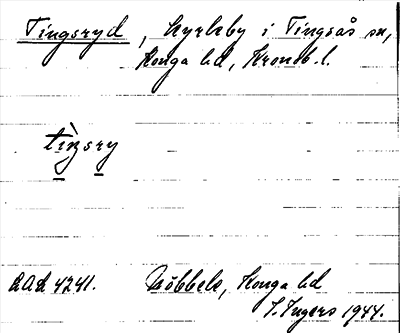 Tingsryd, kyrkby i Tingsås sn,
Konga hd, Kronob. l.
tìŋsry
ULMA 4241. Väckelsång, Konga hd
I. Ingers 1944.